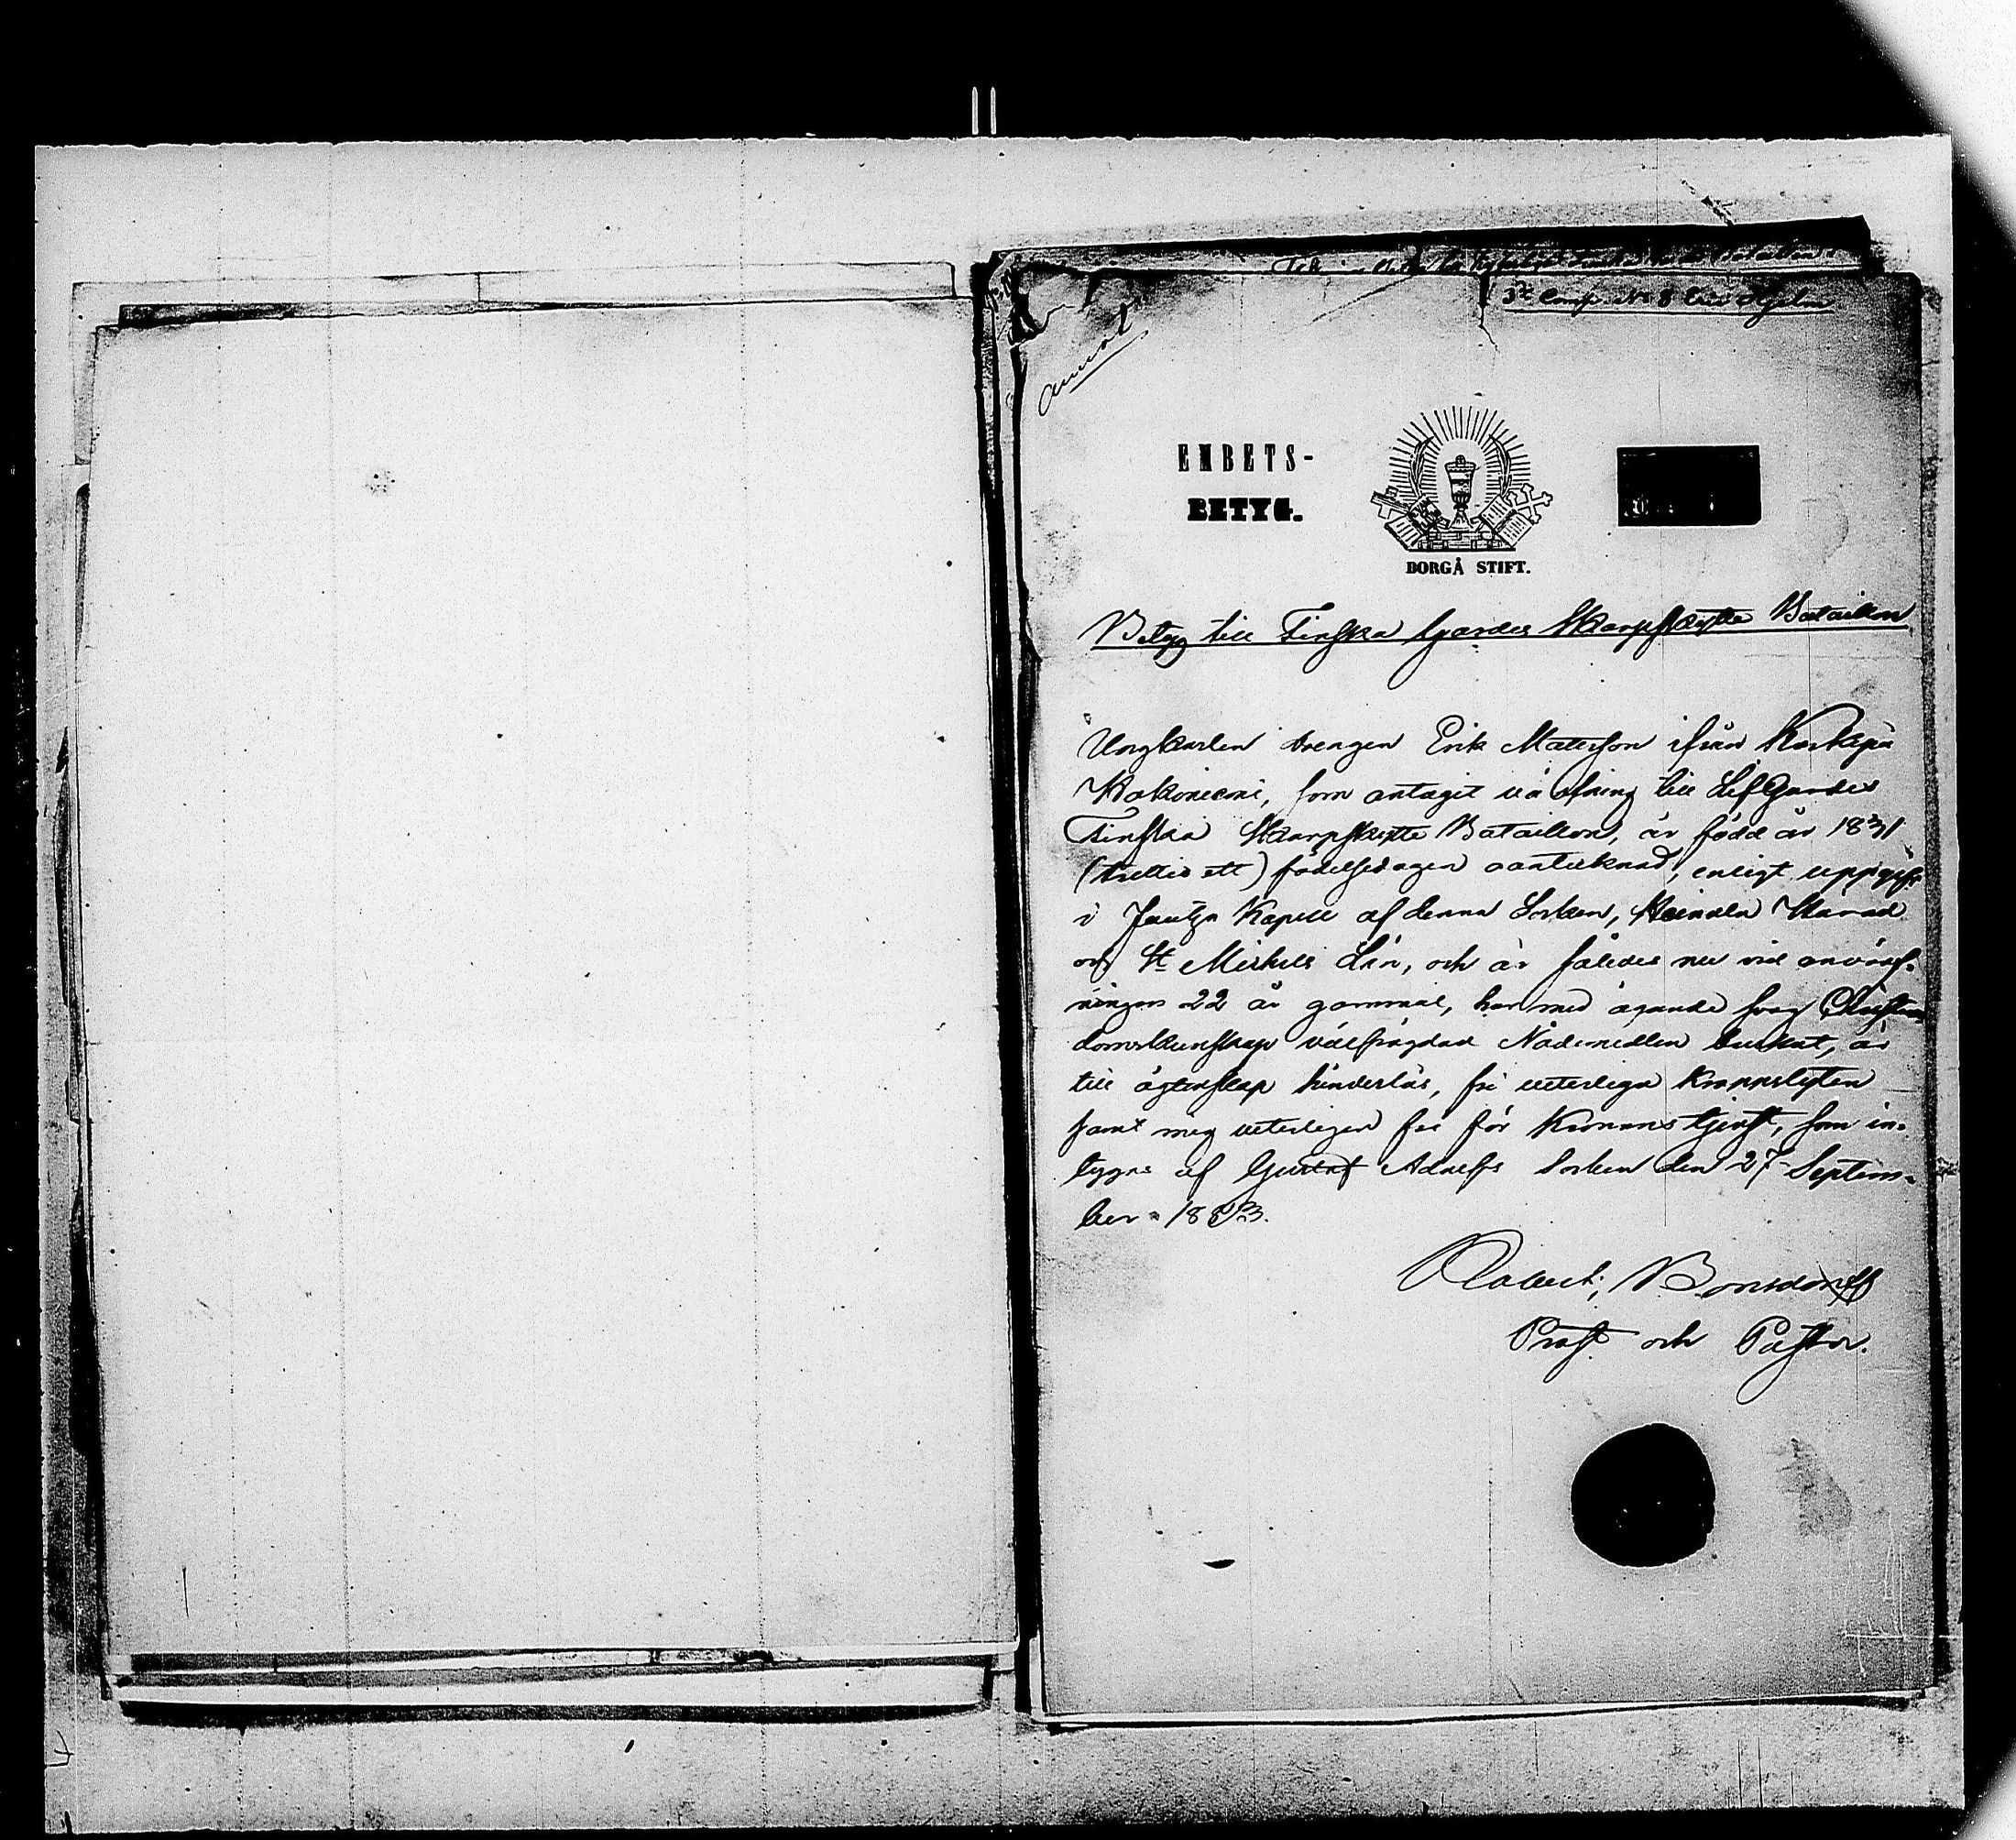 3:e Comp. No 8 Eric Hjelm
EMBETS-
BETYG.
BORGÅ STIFT.
Betyg till Finska Gardes Skarpskytte Bataillon
Ungkarlen drengen Erik Matsson ifrån
som antagit värfning till Lif Gardes
Finska Skarpskytte Bataillon, är född år 1831
(trettio ett) födelsedagen oantecknad, enligt uppgift
i Joutsa Kapell af denna Socken, Heinola Härad
och St Michels Län, och är således nu vid anvärf-
ningen 22 år gammal, har med ägande svag Christen-
domskunskap välfrägdad Nådemedlen bruk at, är
till ägtenskap hinderlös, fri veterliga Kroppslyten
samt mig veterligen fri för Kronans tjenst, som in-
tygas af Gustaf Adolfs Socken den 27 Septem-
ber 1853.
Robert Bonsdorff
Prost och Pastor.